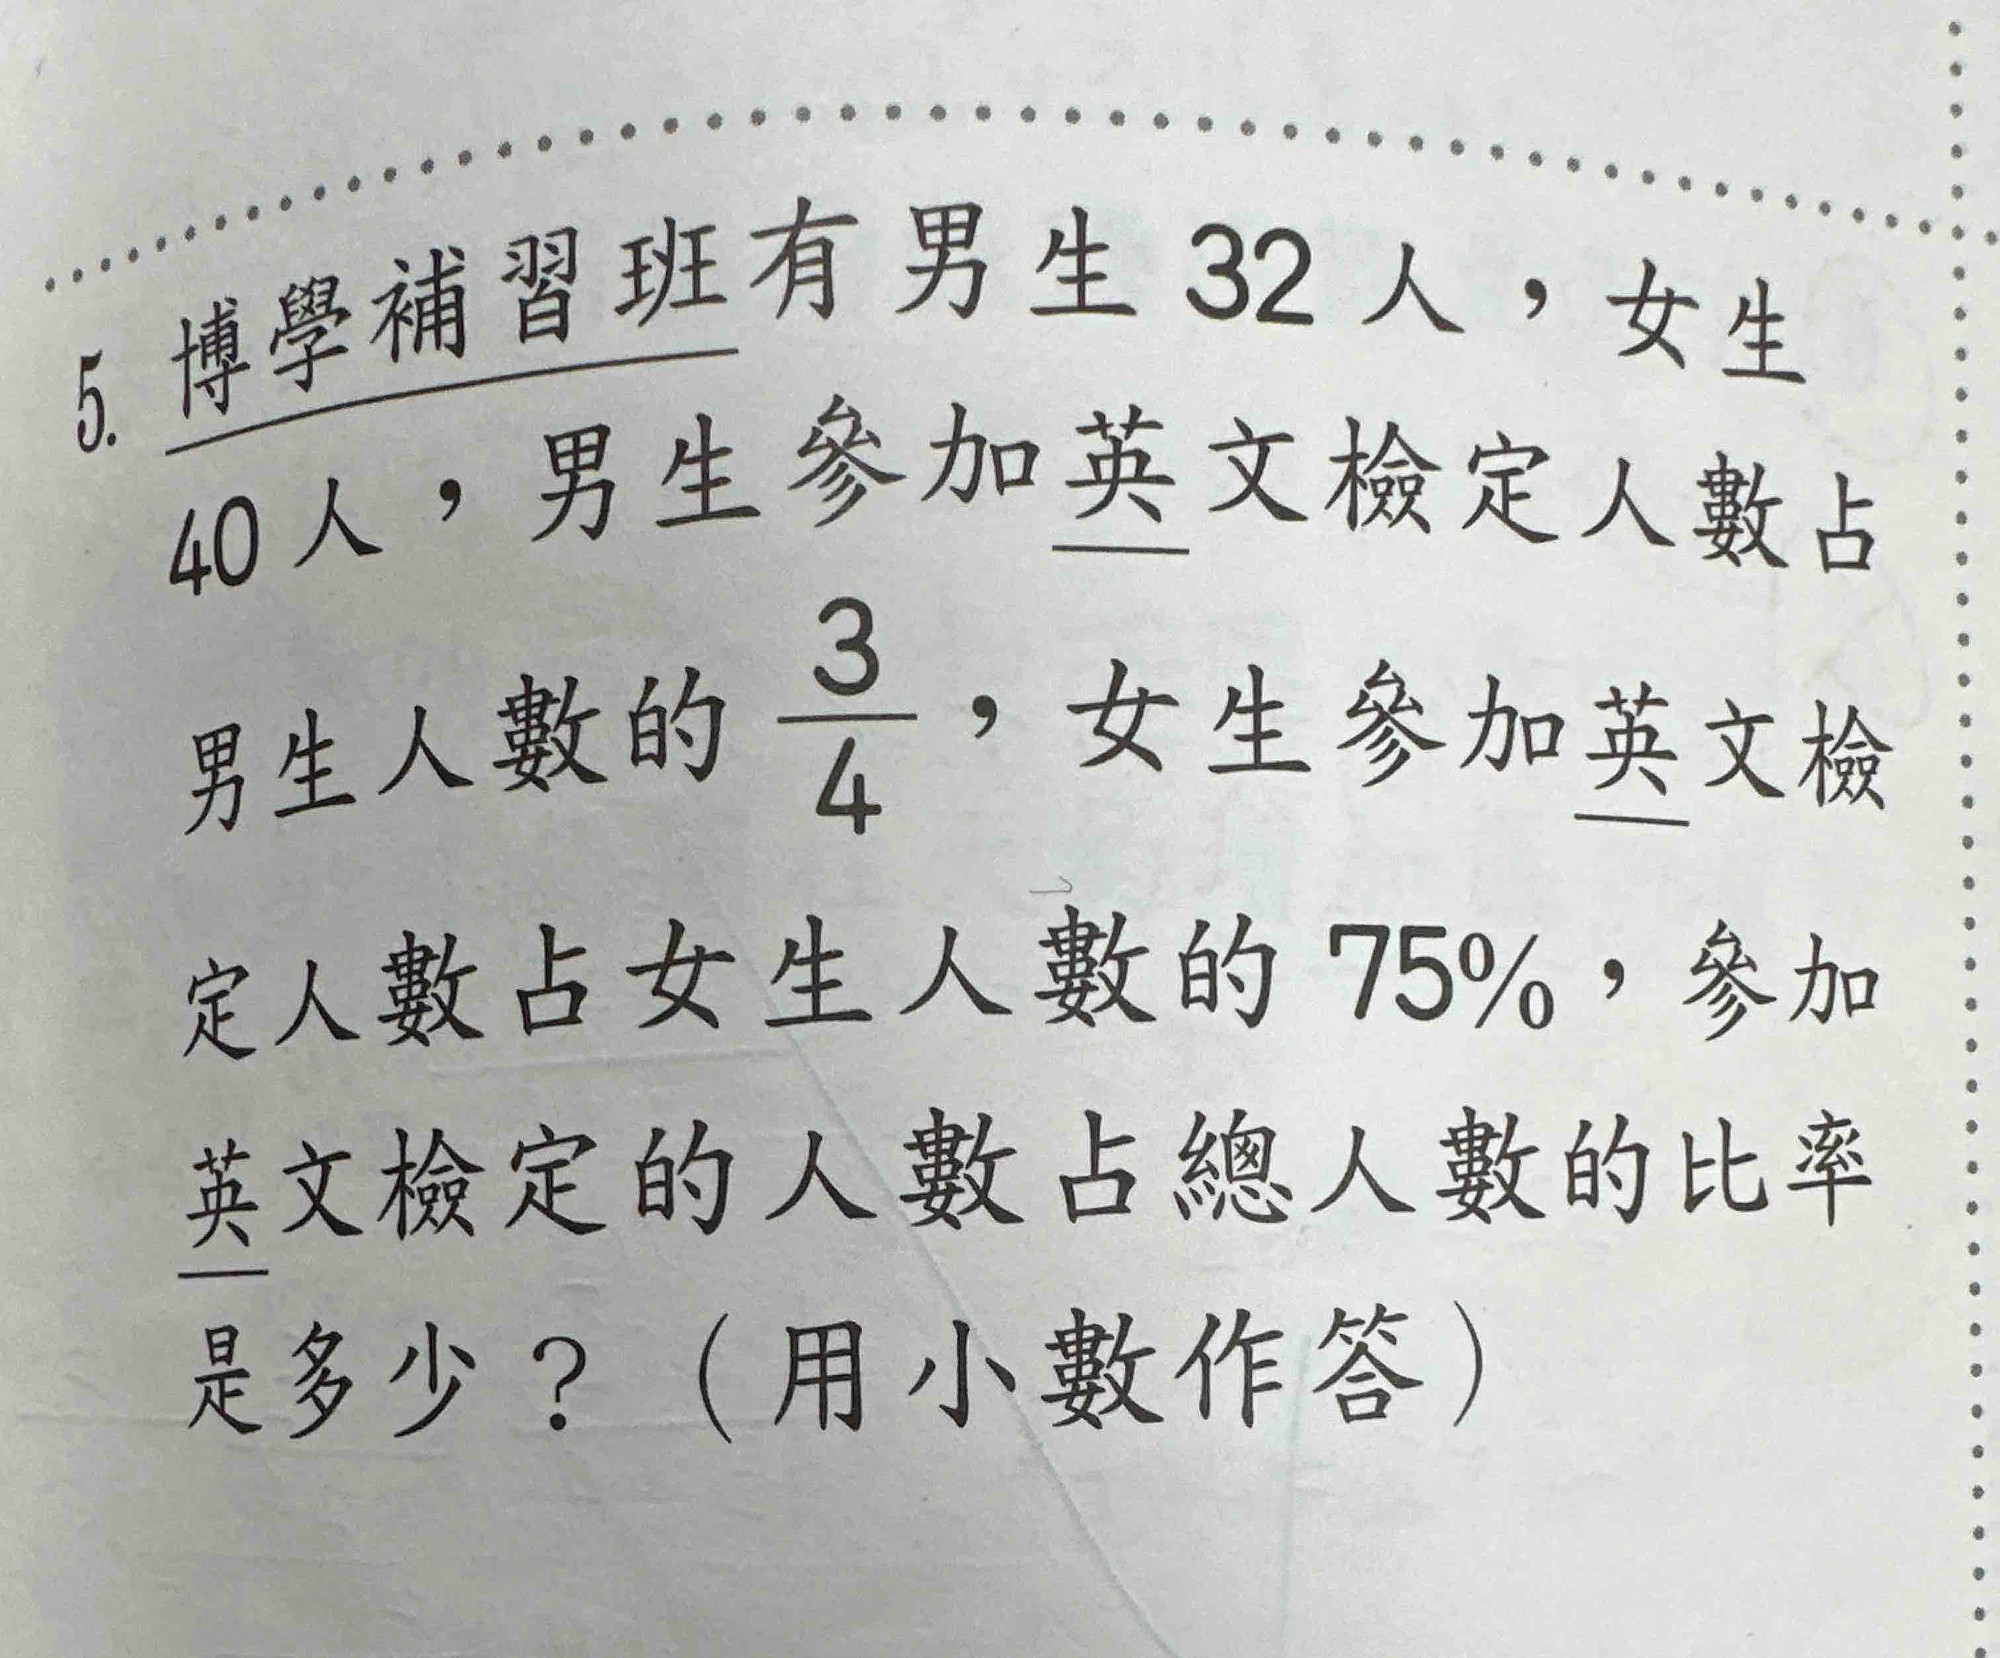 5. 博學補習班有男生 32 人，女生
40 人，男生參加英文檢定人數占
男生人數的 3/4，女生參加英文檢
定人數占女生人數的 75%，參加
英文檢定的人數占總人數的比率
是多少？（用小數作答）